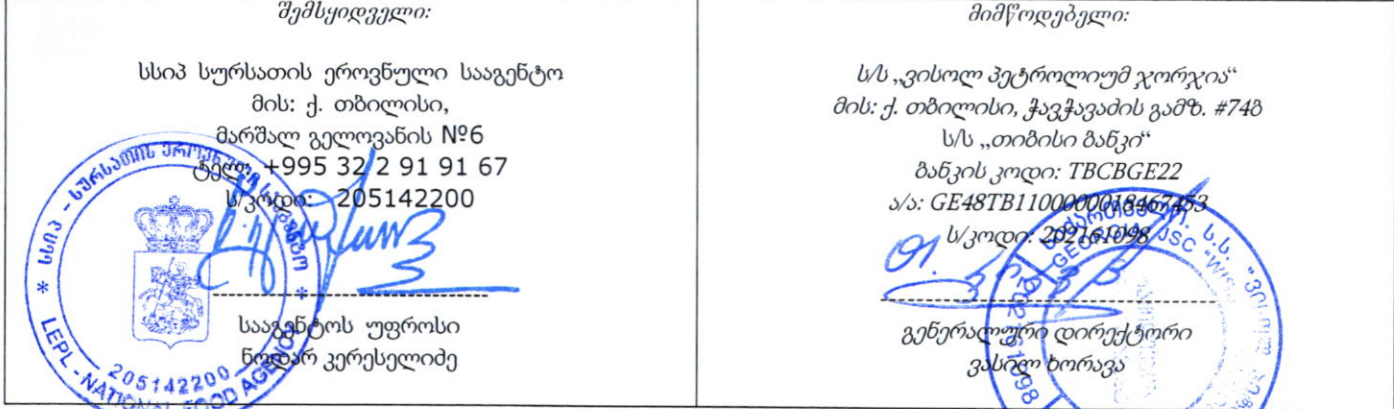 შემსყიდველი:
სსიპ სურსათის ეროვნული სააგენტო
მის: ქ. თბილისი,
მარშალ გელოვანის №6
ტელ: +995 32 2 91 91 67
ს/კოდი: 205142200
სააგენტოს უფროსი
ნოდარ კერესელიძე
სსიპ - სურსათის ეროვნული სააგენტო
LEPL - NATIONAL FOOD AGENCY
205142200
მიმწოდებელი:
ს/ს „ვისოლ პეტროლიუმ ჯორჯია“
მის: ქ. თბილისი, ჭავჭავაძის გამზ. #74ბ
ს/ს „თიბისი ბანკი“
ბანკის კოდი: TBCBGE22
ა/ა: GE48TB1100000018467453
ს/კოდი: 202161098
გენერალური დირექტორი
ვასილ ხორავა
JSC